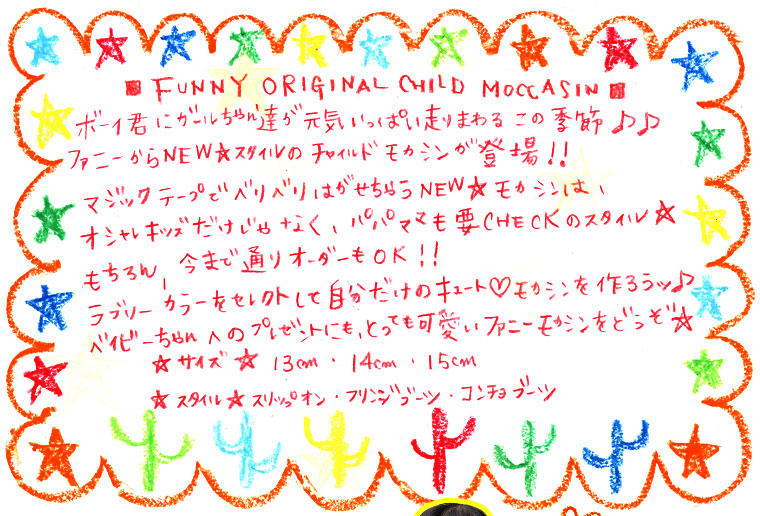 ■ FUNNY ORIGINAL CHILD MOCCASIN ■
ボーイ君にガールちゃん達が元気いっぱい走りまわるこの季節♪♪
ファニーからNEW★スタイルのチャイルドモカシンが登場!!
マジックテープでベリベリはがせちゃうNEW★モカシンは、
オシャレキッズだけじゃなく、パパママも要CHECKのスタイル★
もちろん、今まで通りオーダーもOK!!
ラブリーカラーをセレクトして自分だけのキュート♡モカシンを作ろうッ♪
ベイビーちゃんへのプレゼントにも、とっても可愛いファニーモカシンをどうぞ★
★サイズ★ 13cm・14cm・15cm
★スタイル★スリップオン・フリンジブーツ・コンチョブーツ